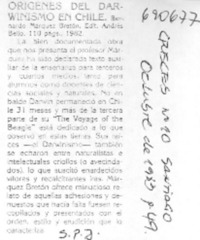 ORIGENES DEL DAR-
WINISMO EN CHILE. Ber-
nardo Márquez Bretón. Edit. Andrés
Bello. 110 pags. 1982.
La bien documentada obra
que nos presenta el profesor Már-
quez ha sido declarada texto auxi-
liar de la enseñanza para terceros
y cuartos medios, tanto para
alumnos como docentes de cien-
cias sociales y naturales. No en
balde Darwin permaneció en Chi-
le 31 meses y más de la tercera
parte de su "The Voyage of the
Beagle" está dedicado a lo que
conoció en estas tierras. Sus raí-
ces —el Darwinismo— también
se echaron entre naturalistas e
intelectuales criollos (o avecinda-
dos), lo que suscitó enardecidos
vítores y recalcitrantes iras. Már-
quez Bretón ofrece minucioso rela-
to de aquellas adhesiones y de-
nuestos que hacía falta fuesen re-
copilados y presentados con el
orden, estilo y erudición que lo
caracteriza.
S.P.Z.
690677
CRECES Nº10 SANTIAGO
Octubre de 1983 p.